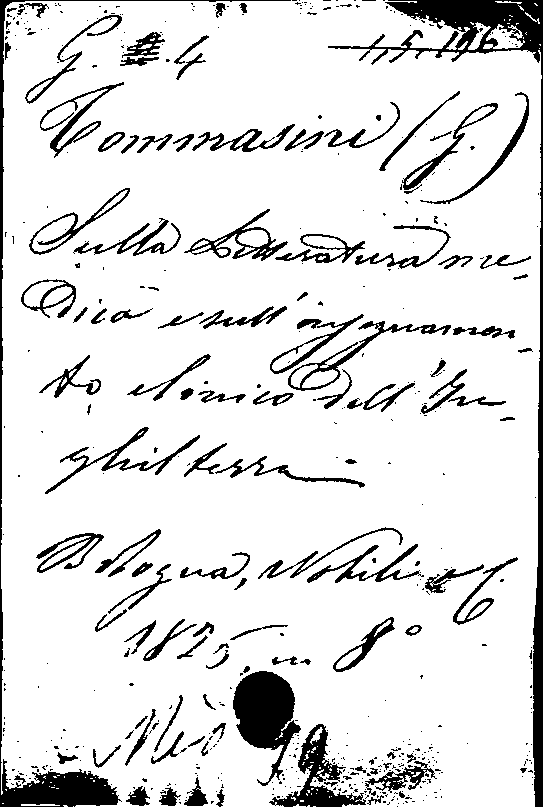 G. 4 1,5,196
Tommasini (G.)
Sulla Letteratura me-
dica e sull'insegnamen-
to, clinico dell'In-
ghilterra
Bologna, Nobili e C.
1825, in 8°
Med 19